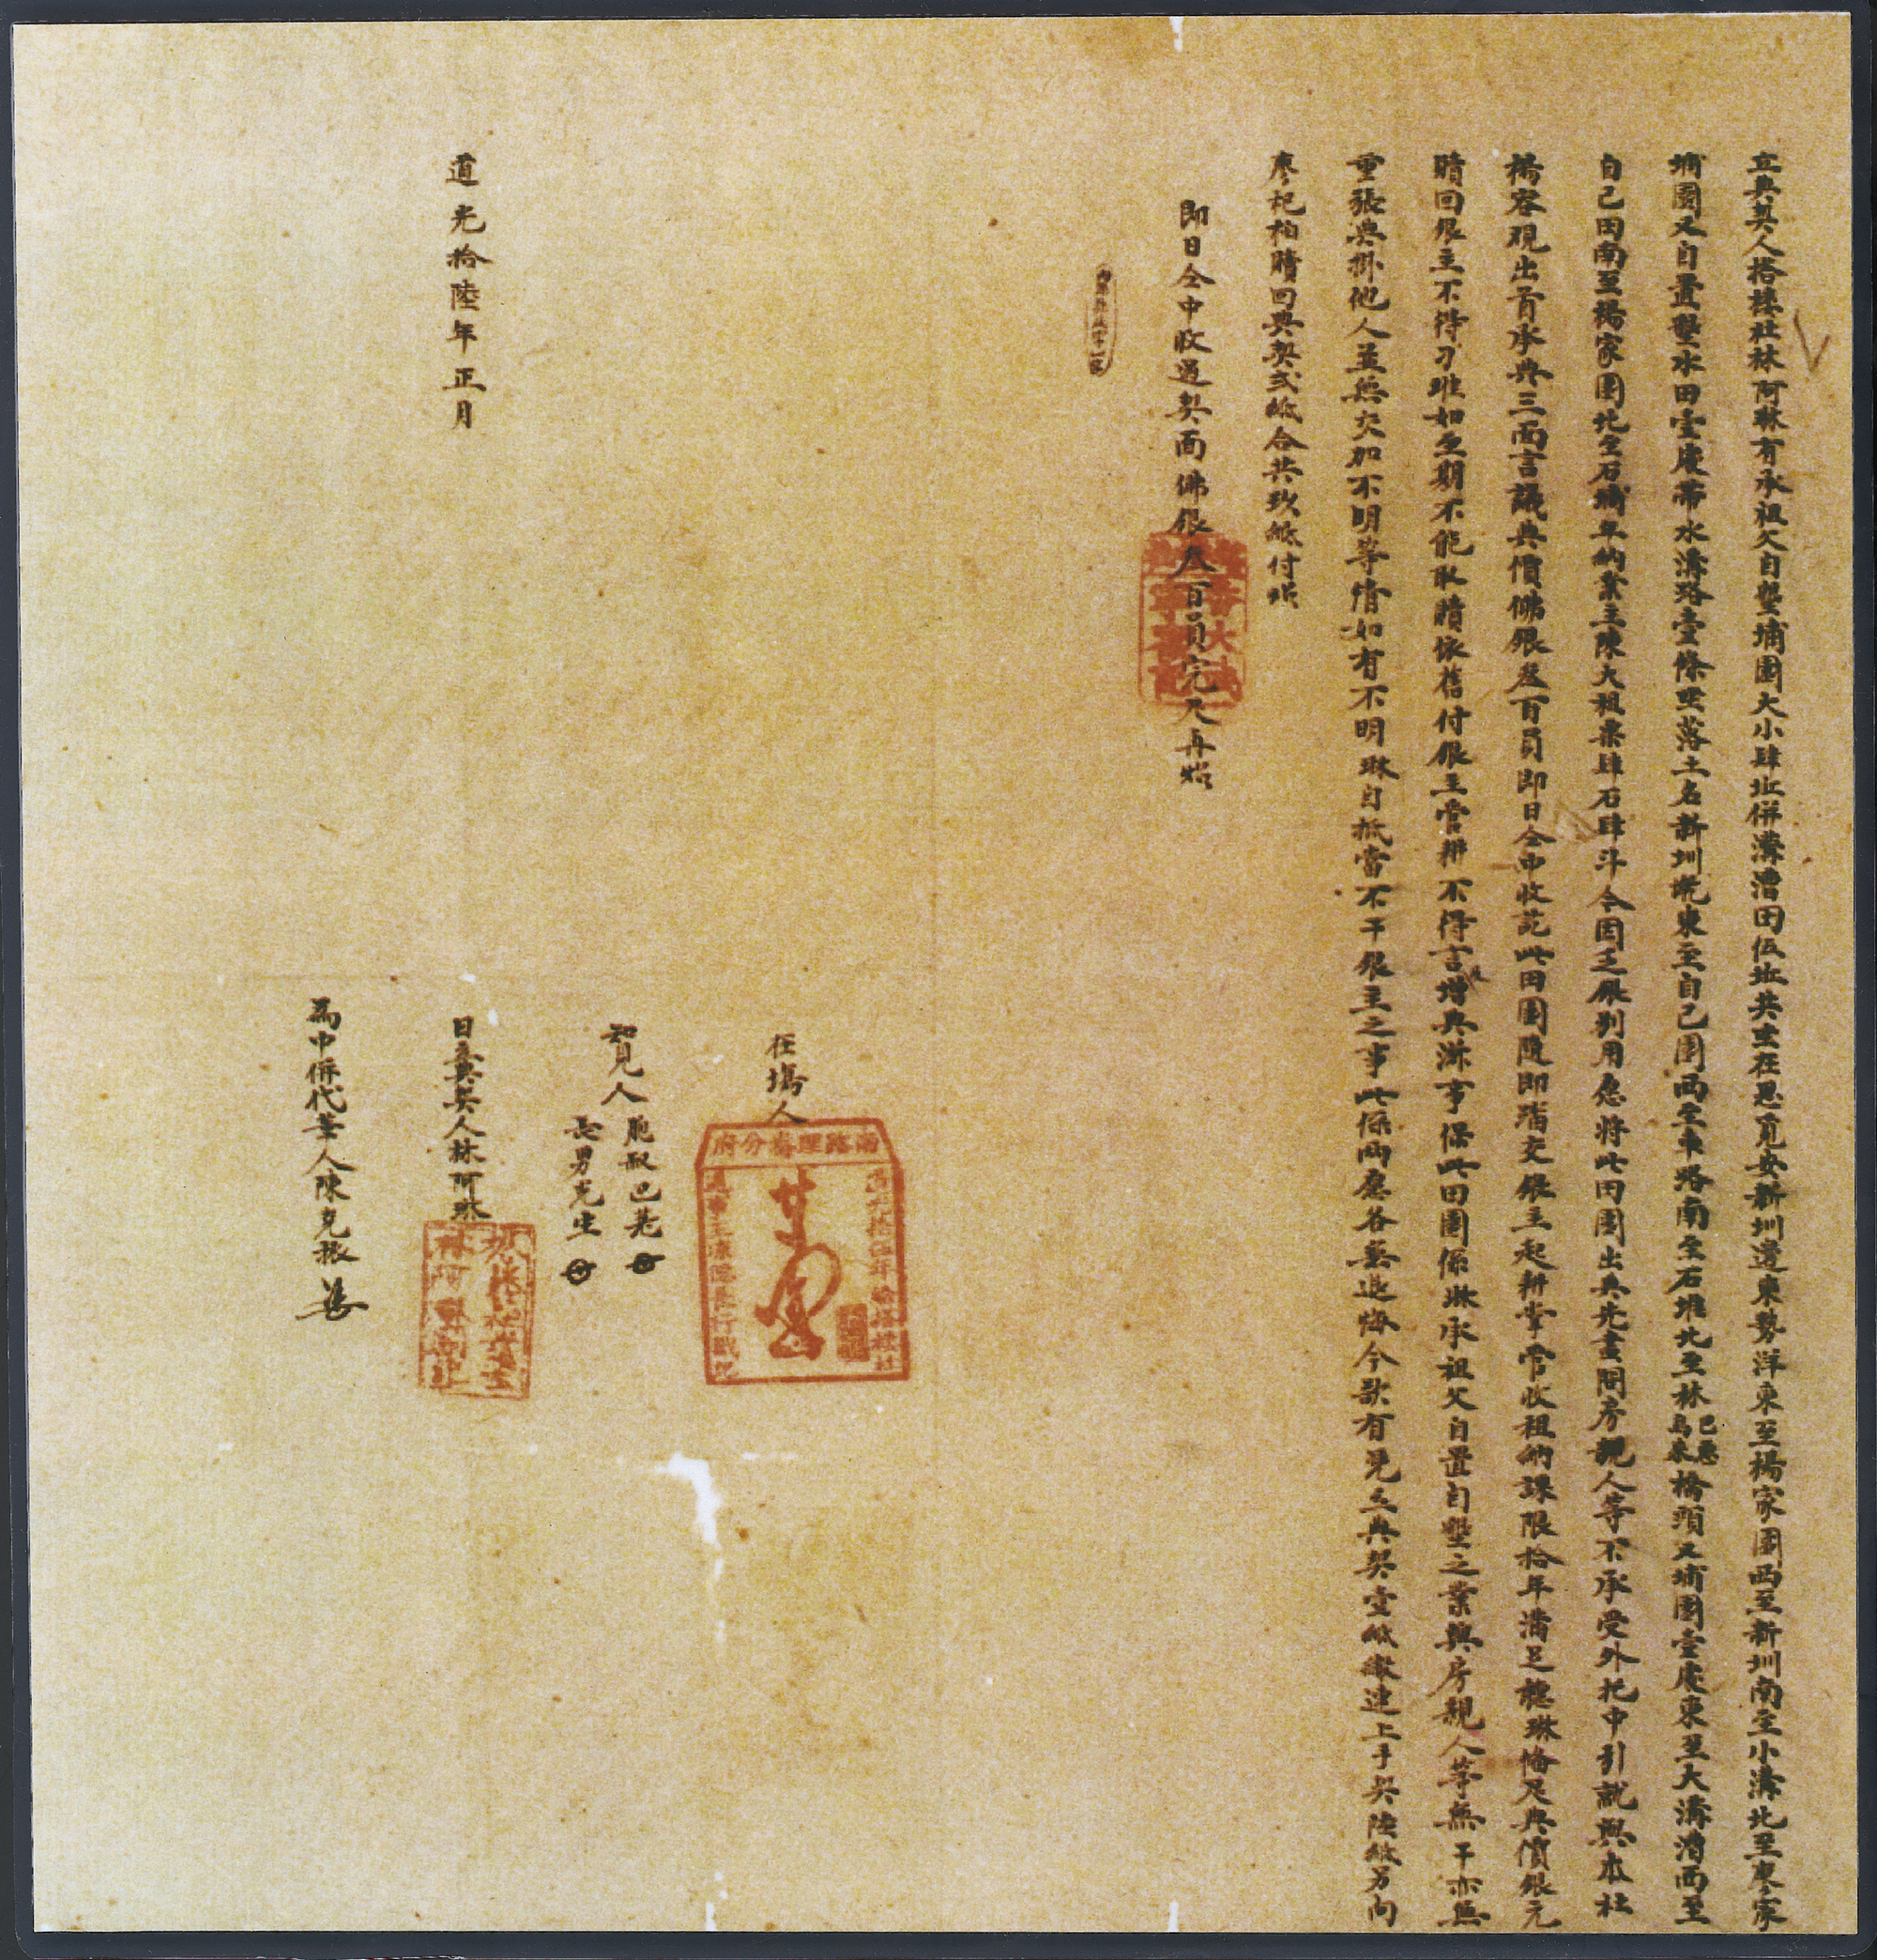 立典契人搭樓社林阿琳有承祖父自墾埔園大小肆坵併溝漕田伍坵共坐在思覓安新圳邊東勢洋東至楊家園西至新圳南至小溝北至廖家
埔園又自置墾水田壹處帶水溝路壹條坐落土名新圳墘東至自己園西至車路南至石堆北至林烏來巴惹橋頭又埔園壹處東至大溝漕西至
自己田南至楊家園北至石埔年納業主陳大租粟肆石肆斗今因乏銀別用愿將此田園出典先盡問房親人等不承受外托中引就與本社
楊容現出首承典三面言議典價佛銀叁百員即日仝中收訖此田園隨即踏交銀主起耕掌管收租納課限拾年滿足聽琳備足典價銀元
贖回銀主不得刁难如至期不能取贖依舊付銀主管耕不得言增典滋事保此田園係琳承祖父自置自墾之業與房親人等無干亦無
重張典掛他人並無欠加不明等情如有不明琳自抵當不干銀主之事此係兩愿各無退悔今欲有憑立典契壹紙繳連上手契陸紙另向
廖杞柏贖回典契弍紙合共玖紙付执
即日仝中收過契面佛銀叁百員完足再炤
在塲人
南路理番分府
知見人 胞叔巴荖
長男克生
道光拾陸年正月
日立典契人林阿琳
為中併代筆人陳克振